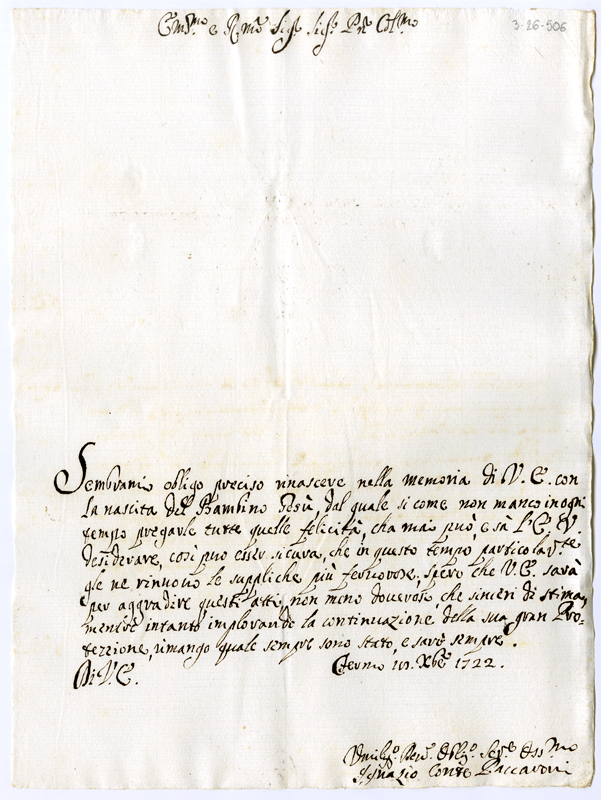 Em.mo e R.mo Sig.r Sig.r P.rne Col.mo
3-26-506
Sembrami obligo preciso rinascere nella memoria di V. E. con
la nascita del Bambino Gesù, dal quale si come non manco in ogni
tempo pregarle tutte quelle felicità, che mai può, e sà l'E. V.
desiderare, così può esser sicura, che in questo tempo particolar.te
gle ne rinuovo le suppliche più fervorose, spero che V. E. sarà
per aggradire questi atti, non meno doverosi, che sinceri di stima,
mentre intanto implorando la continuazione della sua gran Pro-
tezzione, rimango quale sempre sono stato, e sarò sempre.
Di V. E.
Fermo Xbre 1722.
Umiliss.o Dev.o Obl.o Ser.e
Ignazio Conte Paccaroni